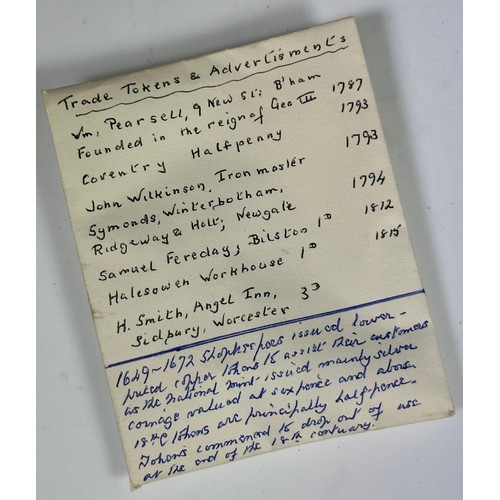 Trade Tokens & Advertisments
Wm, Pearsell, 9 New St: B'ham
Founded in the reign of Geo III 1787
Coventry Halfpenny 1793
John Wilkinson, Iron master 1793
Symonds, Winterbotham,
Ridgeway & Holt; Newgate 1794
Samuel Fereday; Bilston 1D 1812
Halesowen Workhouse 1D 1815
H. Smith, Angel Inn,
Sidbury, Worcester 3D
1649-1672 Shopkeepers issued lower-
priced copper tokens to assist their customers
as the national mint issued mainly silver
coinage valued at sixpence and above.
18th C tokens are principally half-pence.
Tokens commenced to drop out of use
at the end of the 18th century.